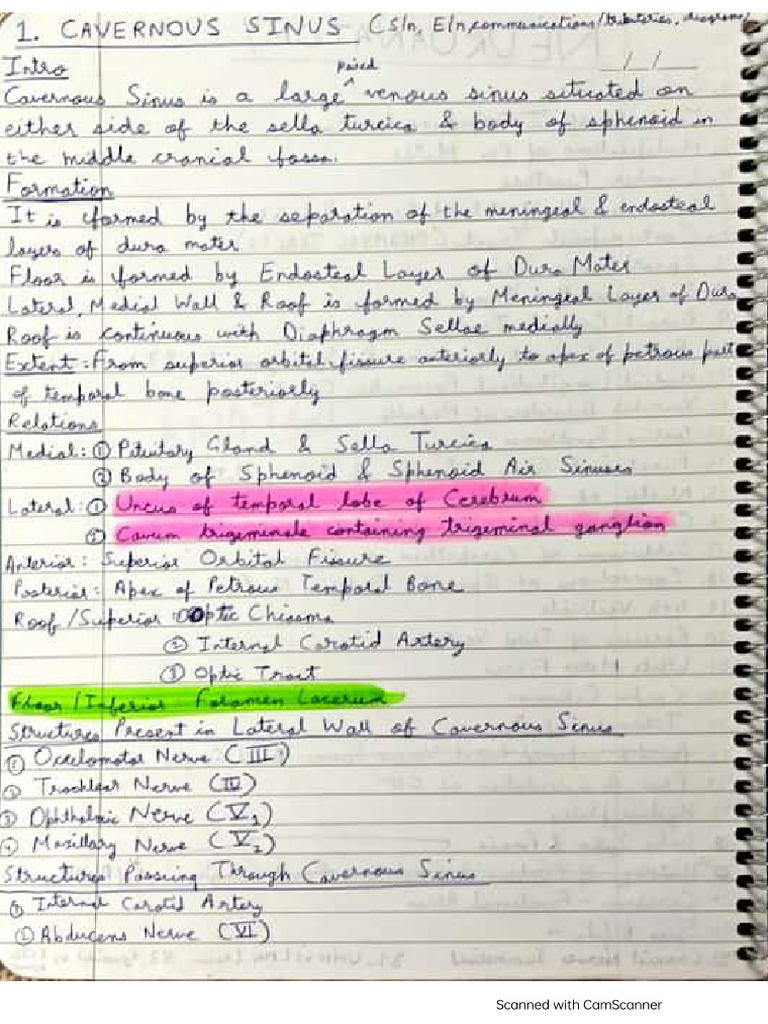 1. CAVERNOUS SINUS (S/n, E/n, communications/tributaries, diagrams)
Intro
paired
__/__/__
Cavernous Sinus is a large ^ venous sinus situated on
either side of the sella turcica & body of sphenoid in
the middle cranial fossa.
Formation
It is formed by the separation of the meningeal & endosteal
layers of dura mater
Floor is formed by Endosteal Layer of Dura Mater
Lateral, Medial Wall & Roof is formed by Meningeal Layer of Dura
Roof is continuous with Diaphragm Sellae medially
Extent: From superior orbital fissure anteriorly to apex of petrous part
of temporal bone posteriorly
Relations
Medial: ① Pituitary Gland & Sella Turcica
② Body of Sphenoid & Sphenoid Air Sinuses
Lateral: ① Uncus of temporal lobe of Cerebrum
② Cavum trigeminale containing trigeminal ganglion
Anterior: Superior Orbital Fissure
Posterior: Apex of Petrous Temporal Bone
Roof/Superior ① Optic Chiasma
② Internal Carotid Artery
③ Optic Tract
Floor/Inferior: Foramen Lacerum
Structures Present in Lateral Wall of Cavernous Sinus
① Occulomotor Nerve (III)
② Trochlear Nerve (IV)
③ Ophthalmic Nerve (V1)
④ Maxillary Nerve (V2)
Structures Passing Through Cavernous Sinus
① Internal Carotid Artery
② Abducens Nerve (VI)
Scanned with CamScanner